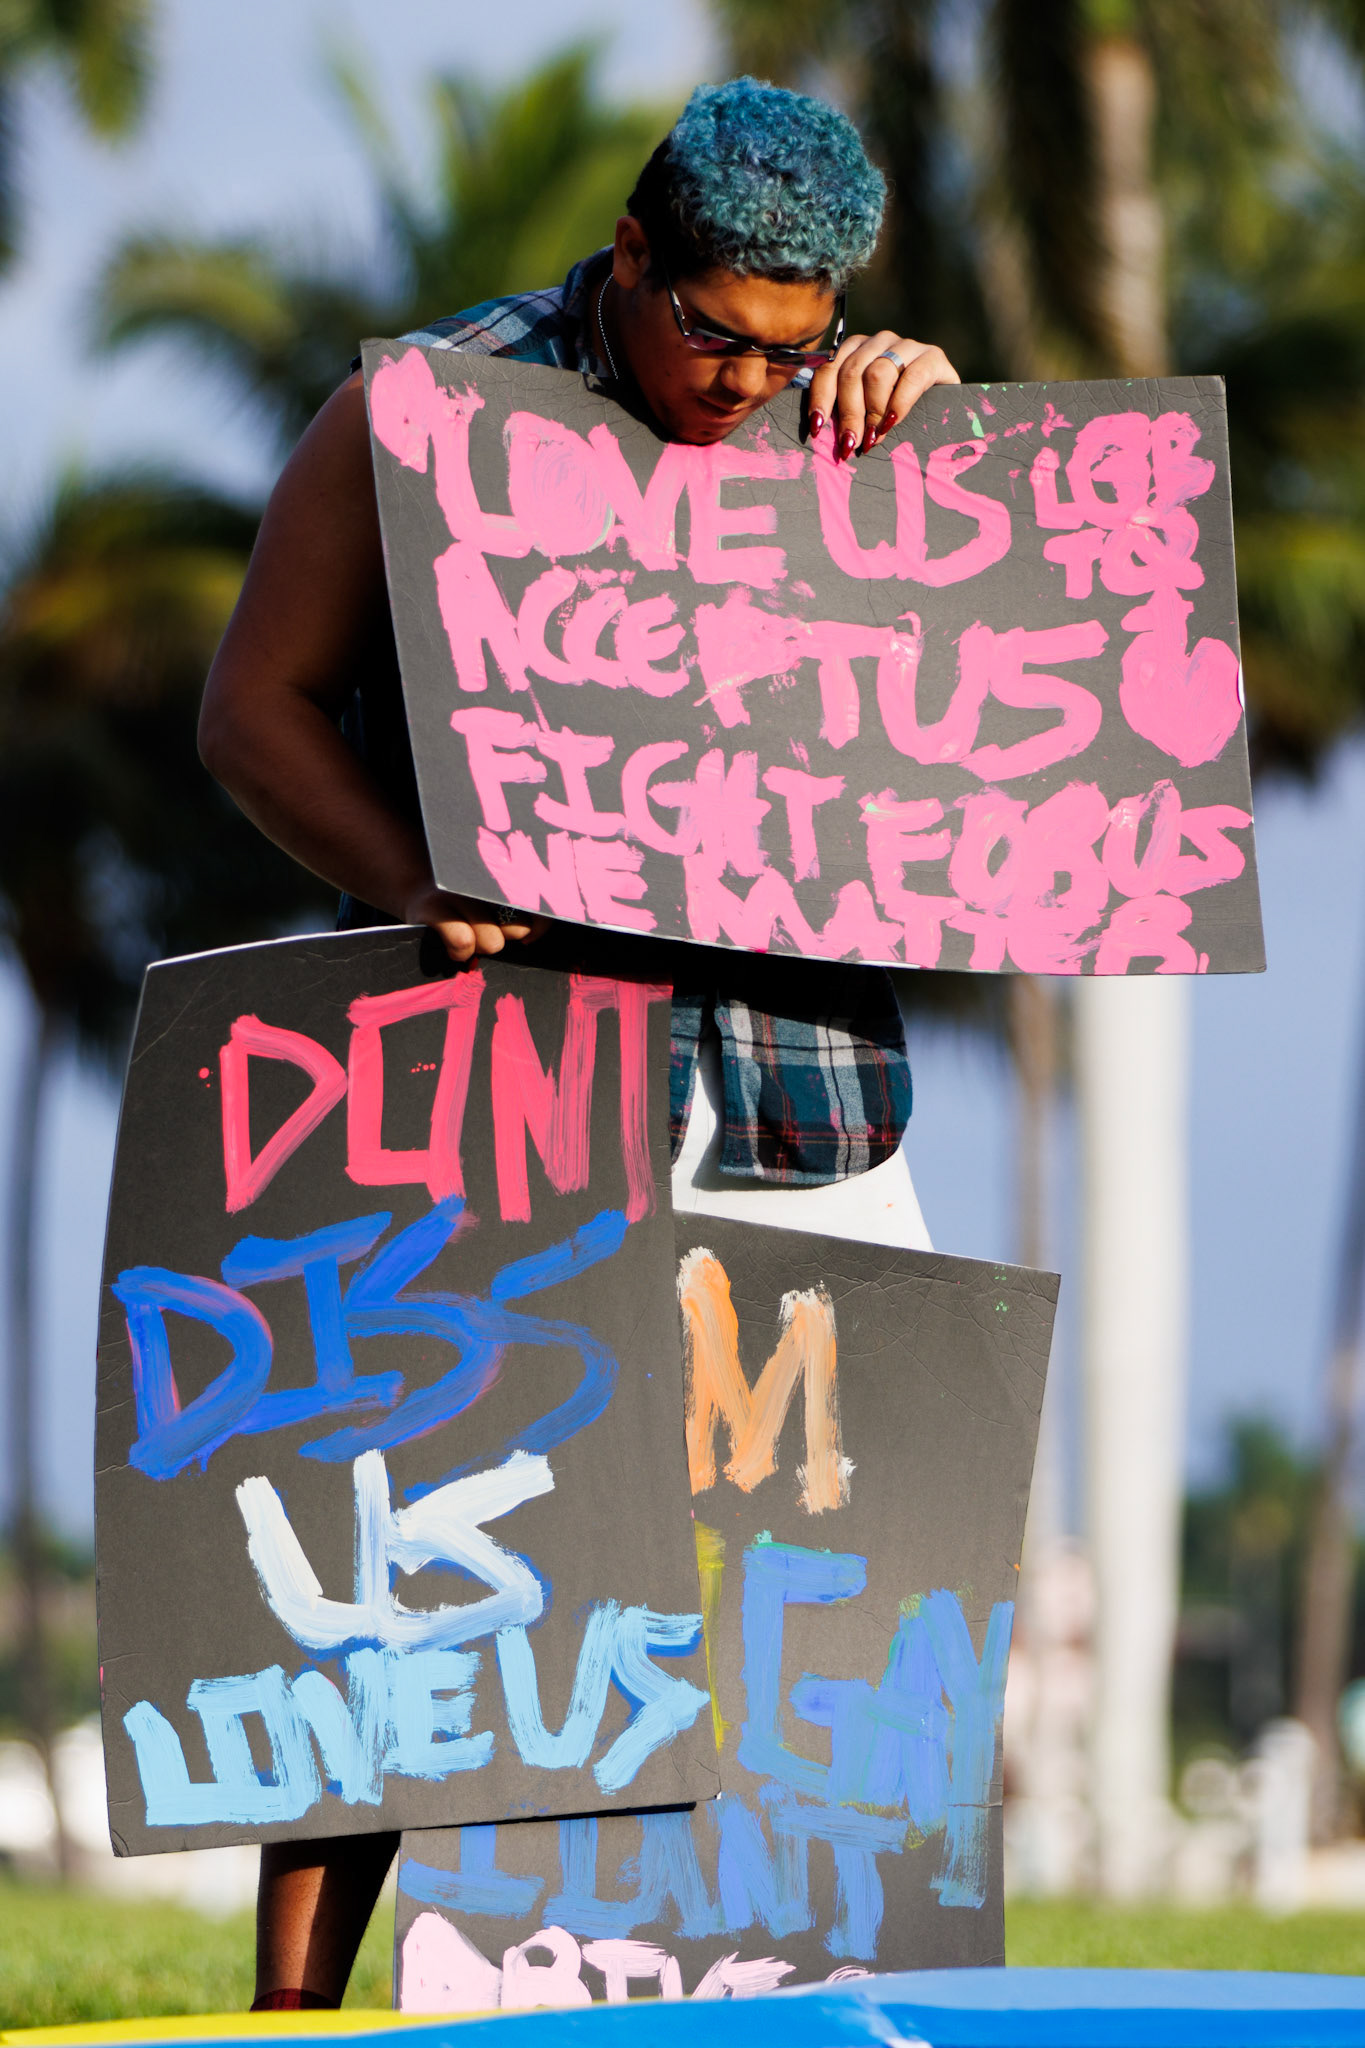 LOVE US LGB
TQ
ACCEPT US
FIGHT FOR US
WE MATTER
DONT
DISS
US
LOVE US
M
GAY
I CANT